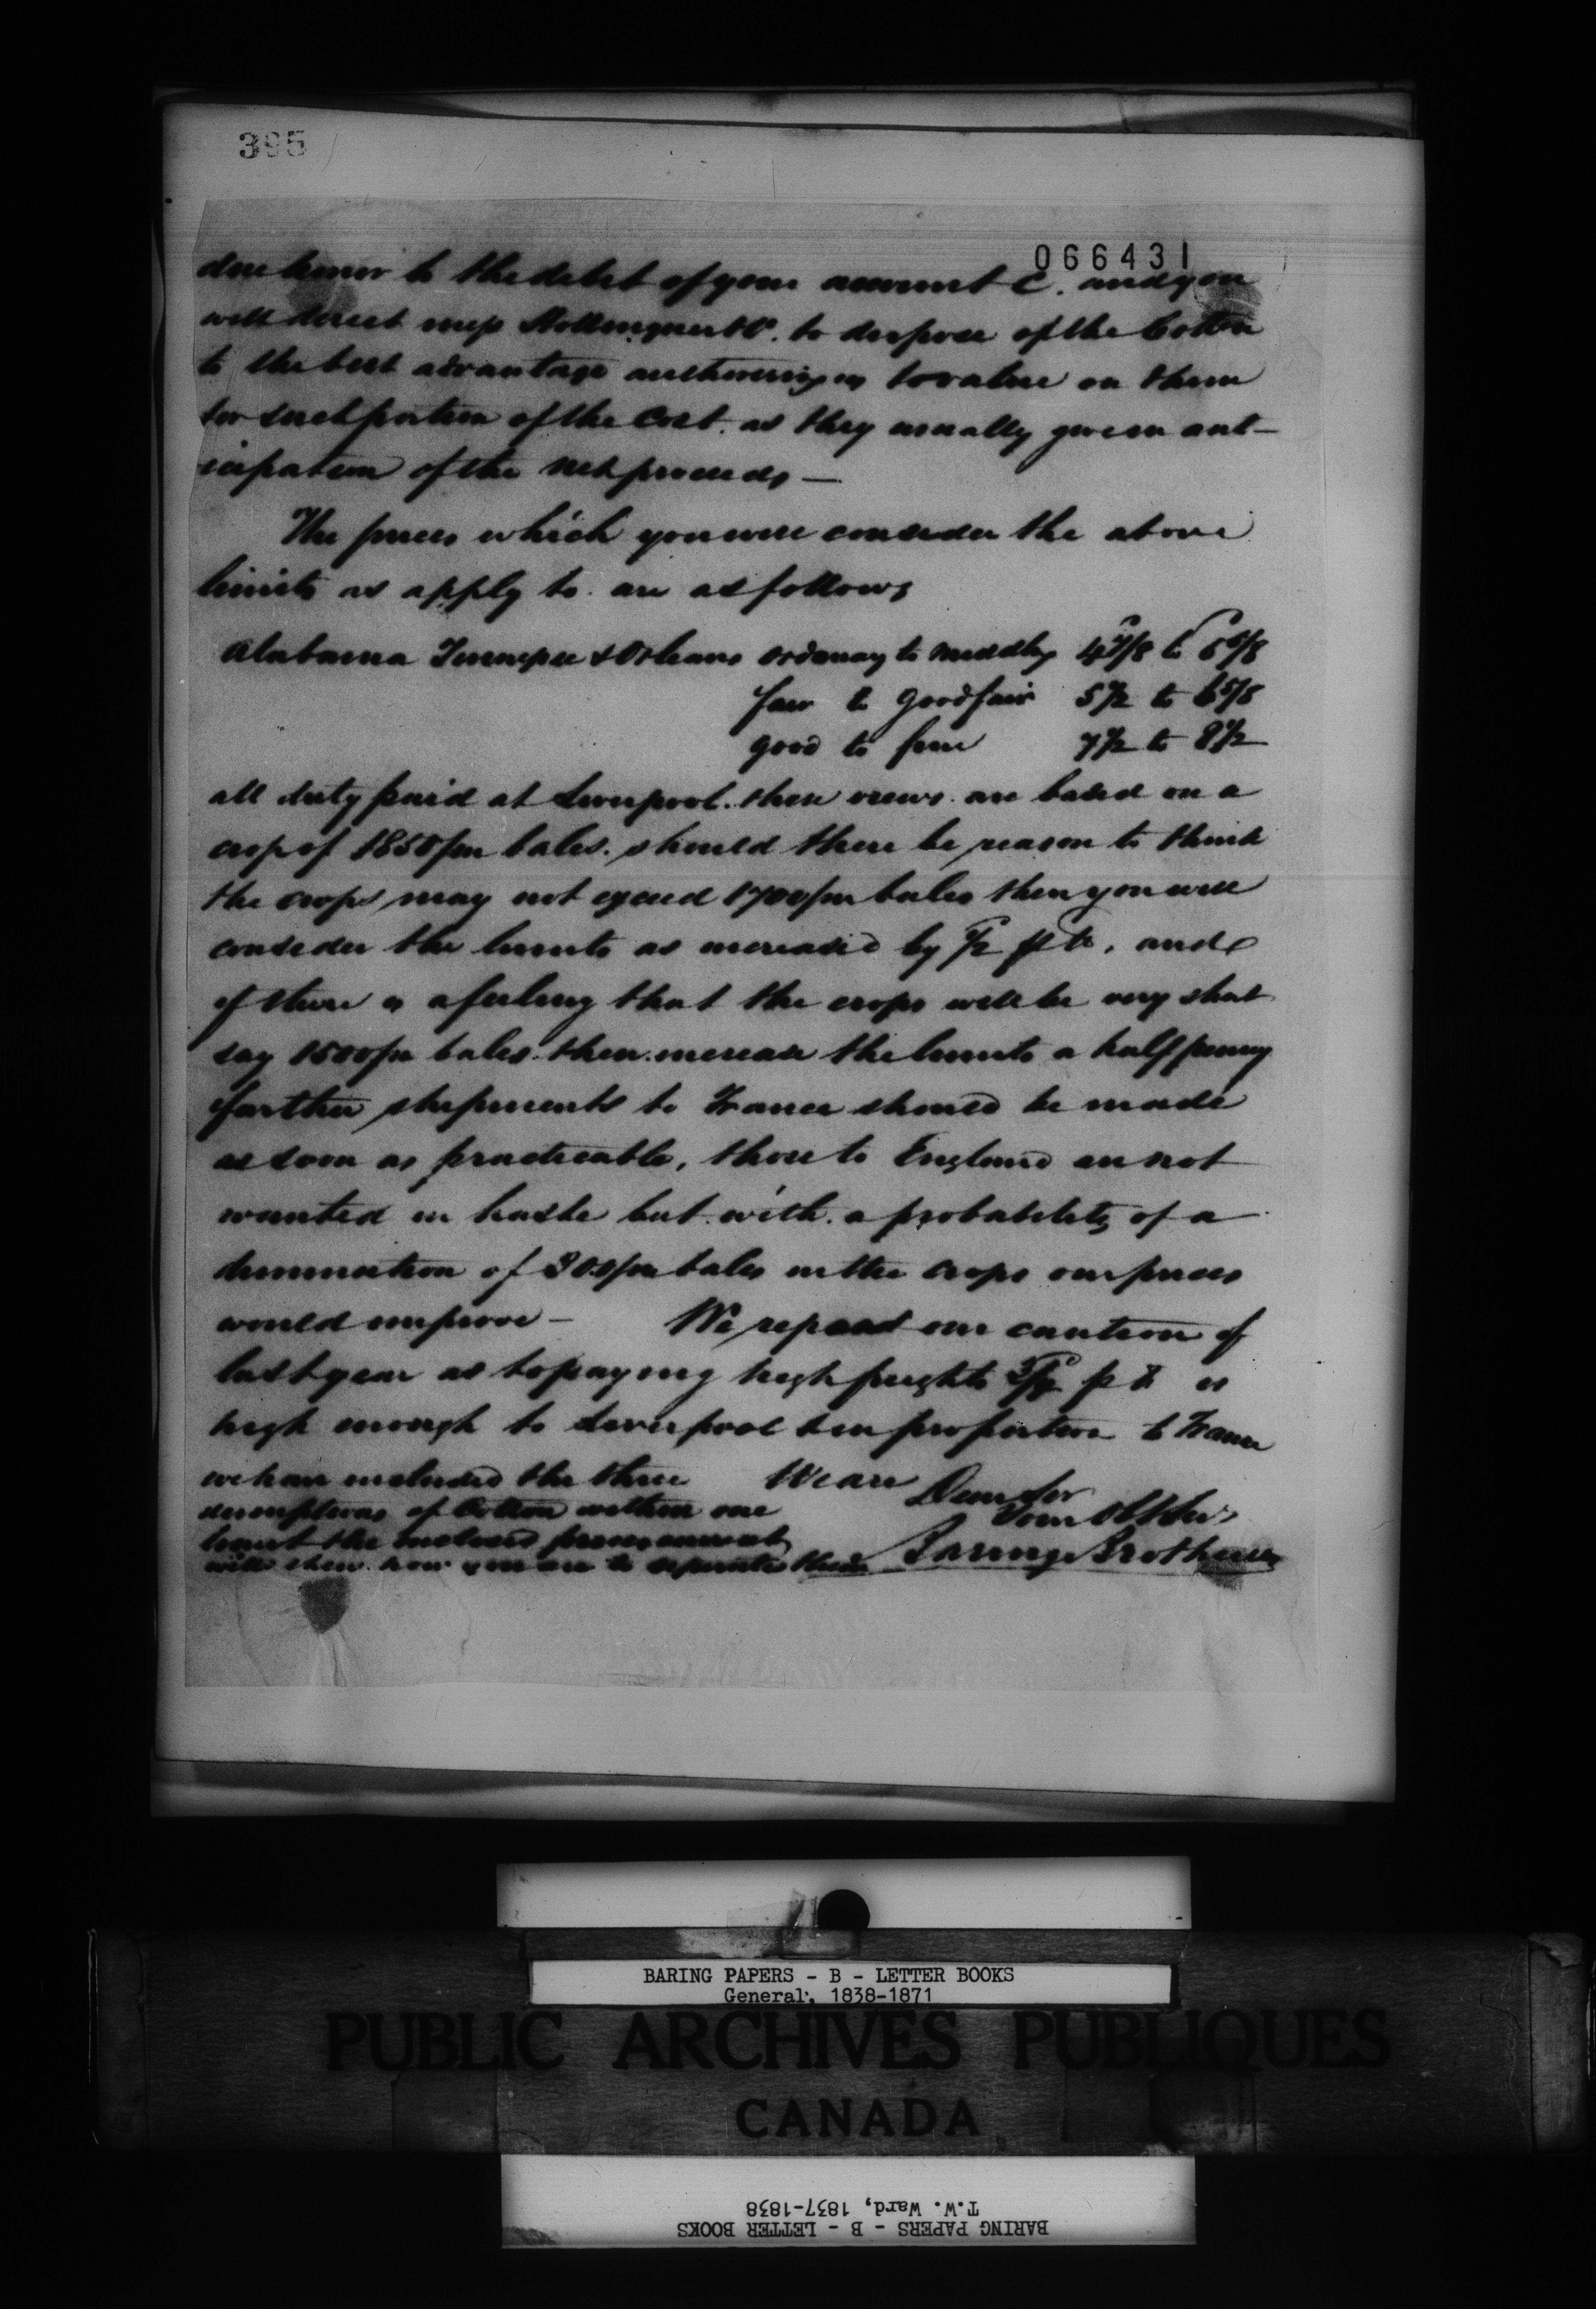 395
066431
due honor to the debit of your account C. and you
will direct mess Hottinguer & Co. to dispose of the Cotton
to the best advantage authorising us to value on them
for such portion of the Cost. as they usually give in ant-
icipation of the net proceeds —
The prices which you will consider the above
limits as apply to are as follows
Alabama Tennessee & Orleans ordinary to middlg 4 7/8 to
fair to good fair 5 1/2 to 6 5/8
good to fine 7 1/2 to 8 1/2
all duty paid at Liverpool. these views are based on a
crop of 1850/m bales. should there be reason to think
the crops may not exceed 1700/m bales then you will
consider the limits as increased by 1/2 p lb, and
if there is a feeling that the crops will be very short
say 1500/m bales. then increase the limits a half penny
further shipments to France should be made
as soon as practicable, those to England are not
wanted in haste but with a probability of a
diminution of 300/m bales in the crops our prices
would improve — We repeat our caution of
last year as to paying high freights p lb is
high enough to Liverpool & in proportion to France
we have included the three We are Dear Sir
descriptions of Cotton within one Your Ob Ser
limit the inclosed
will shew how you are to separate them Baring Brothers
BARING PAPERS - B - LETTER BOOKS
General, 1838-1871
PUBLIC ARCHIVES PUBLIQUES
CANADA
BARING PAPERS - B - LETTER BOOKS
T.W. Ward, 1837-1838